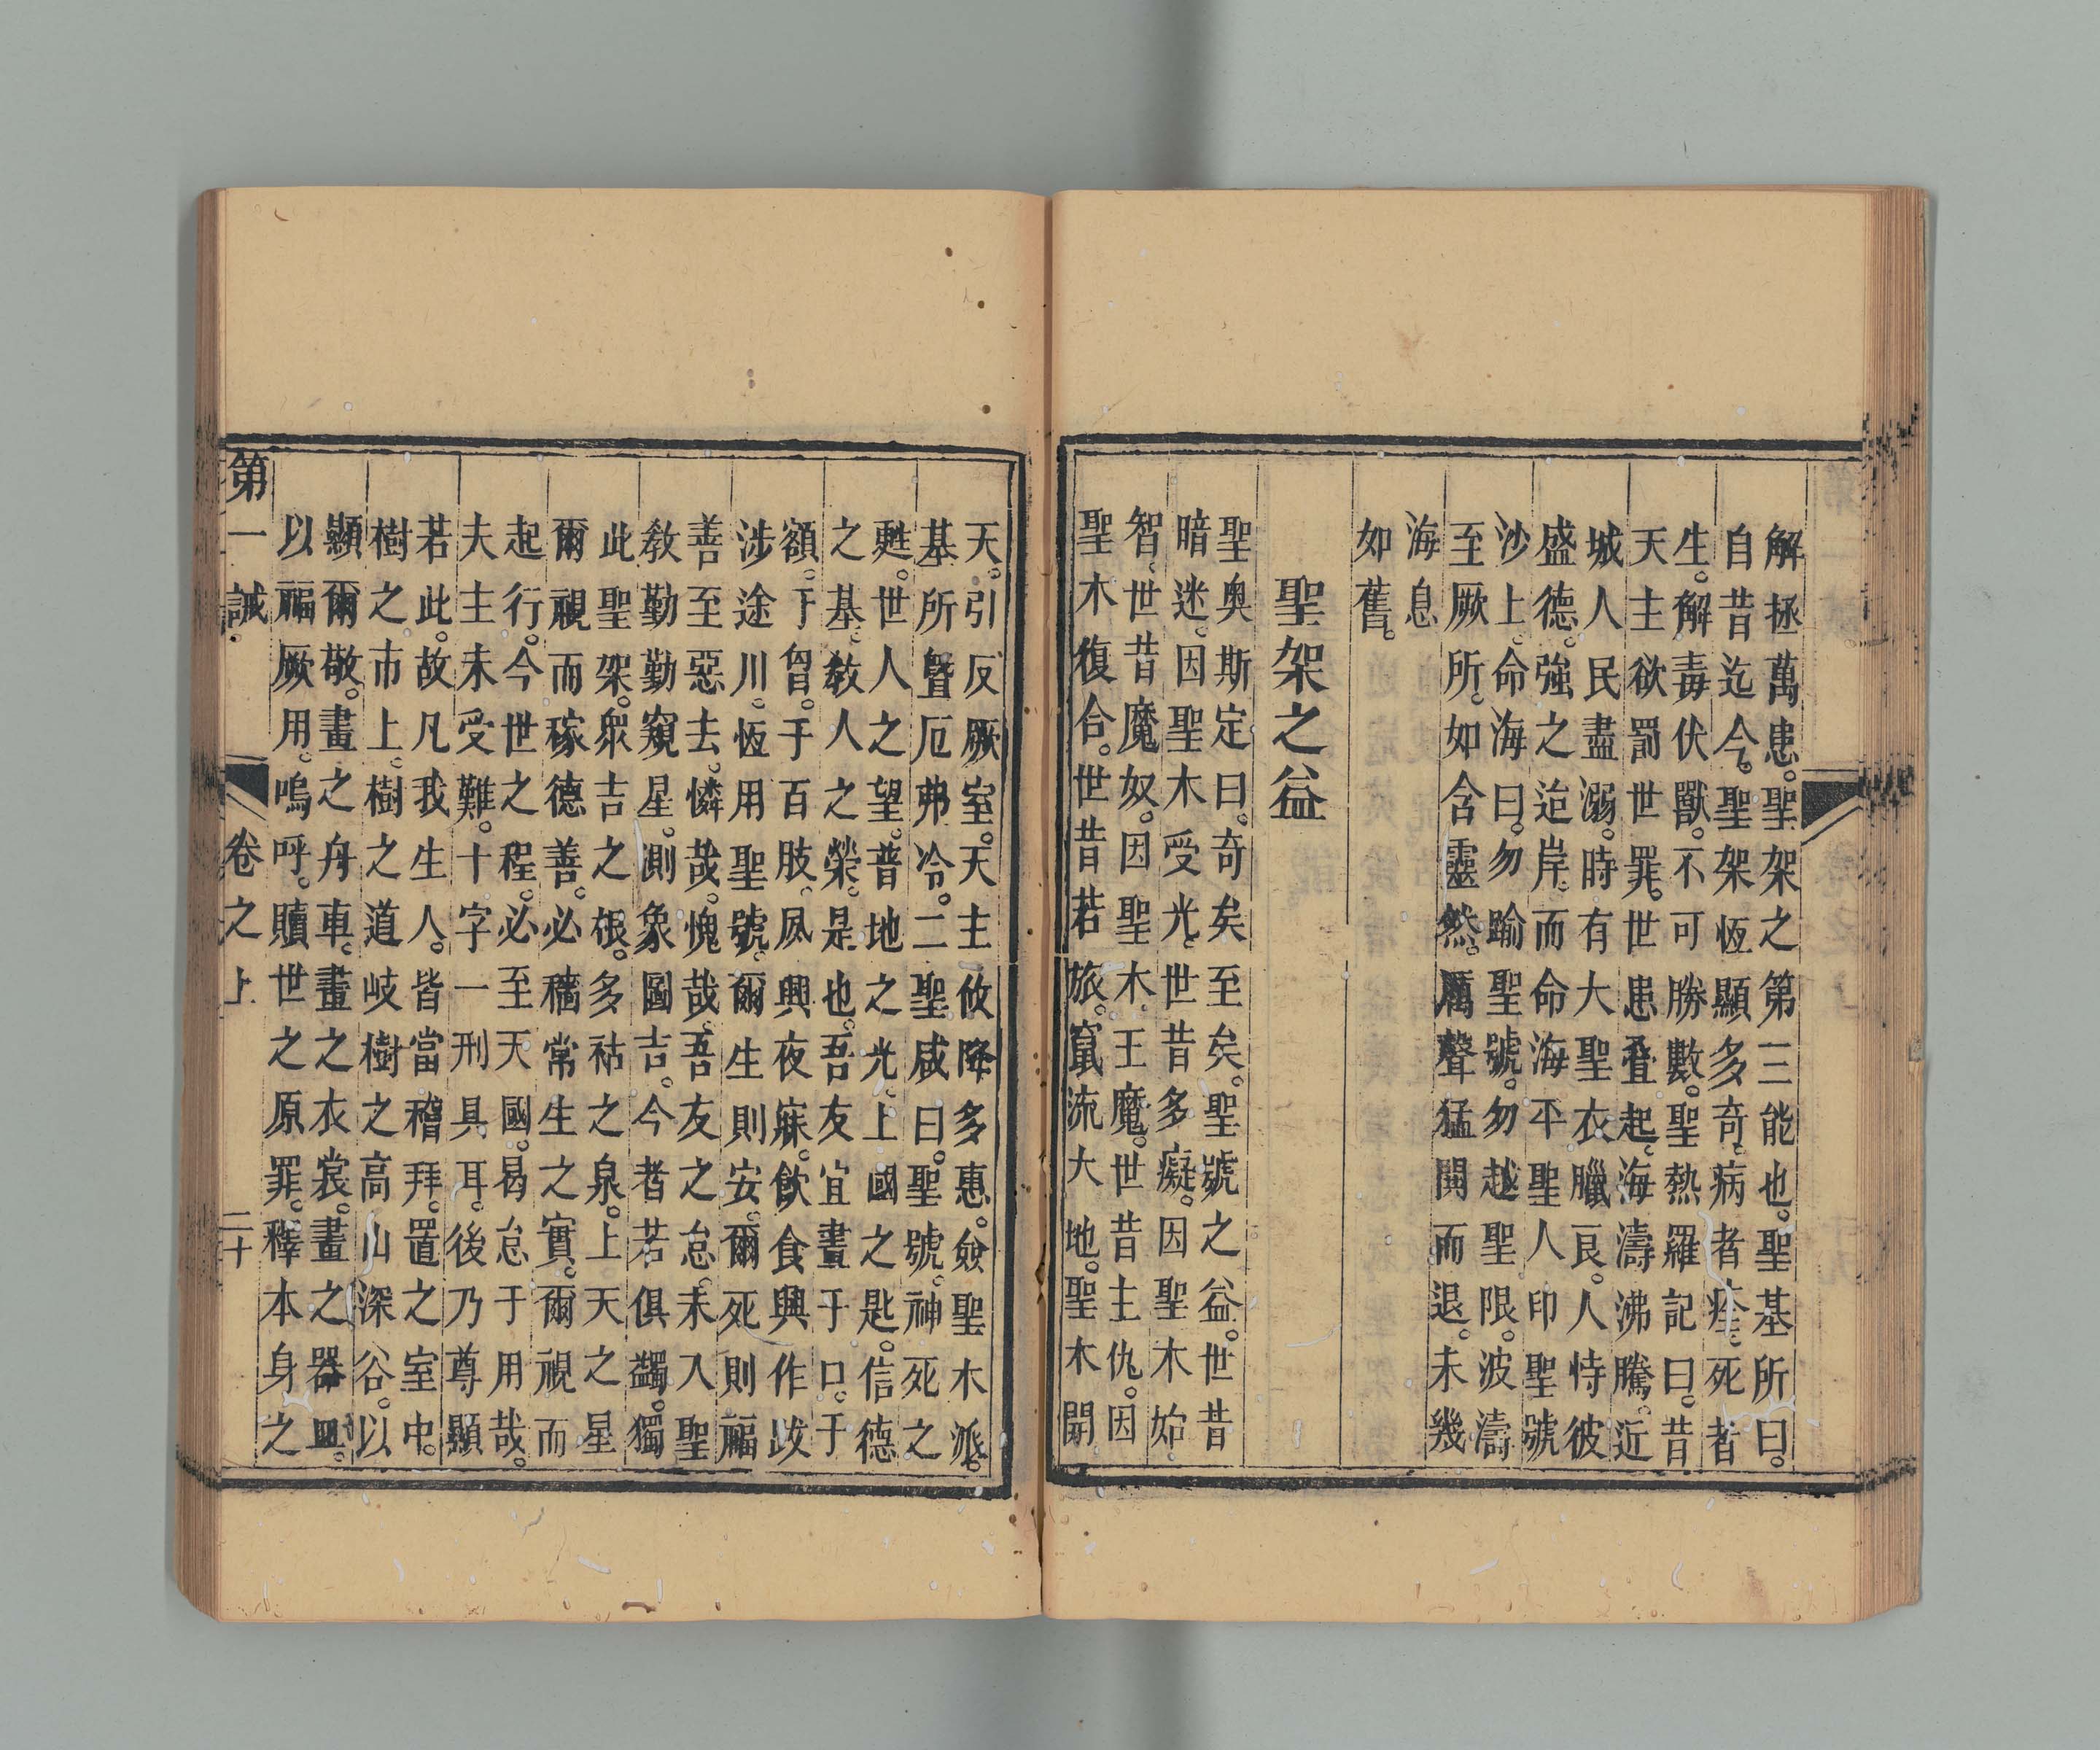 解拯萬患。聖架之第三能也。聖基所曰。
自昔迄今。聖架恆顯多奇。病者痊。死者
生。解毒伏獸。不可勝數。聖熱羅記曰。昔
天主欲罰世罪。世患疊起。海濤沸騰。近
城人民盡溺。時有大聖衣臘艮。人恃彼
盛德。強之迨岸。而命海平。聖人印聖號
沙上。命海曰。勿踰聖號。勿越聖限。波濤
至厥所。如含靈然。厲聲猛閧而退。未幾
海息
如舊。
聖架之益
聖奥斯定曰。奇矣至矣。聖號之益。世昔
暗迷。因聖木受光。世昔多癡。因聖木始
智。世昔魔奴。因聖木王魔。世昔主仇。因
聖木復合。世昔若旅。竄流大地。聖木開
天。引反厥室。天主攸降多惠。僉聖木派。
基所曁厄弗冷。二聖咸曰。聖號。神死之
甦。世人之望。普地之光。上國之匙。信德
之基。教人之榮。是也。吾友宜畫于口。于
額。于胷。于百肢。夙興夜寐。飲食興作。跋
涉途川。恆用聖號。爾生則安。爾死則福
善至惡去。憐哉。愧哉。吾友之怠。未入聖
教。勤勤窺星。測象圖吉。今者若俱蠲。獨
此聖架。衆吉之根。多祜之泉。上天之星
爾視而稼德善。必穡常生之實。爾視而
起行。今世之程。必至天國。曷怠于用哉。
夫主未受難。十字一刑具耳。後乃尊顯
若此。故凡我生人。皆當稽拜。置之室中。
樹之市上。樹之道岐。樹之高山深谷。以
顯爾敬。畫之舟車。畫之衣裳。畫之器皿。
以福厥用。嗚呼。贖世之原罪。釋本身之
第一誡 卷之上 二十